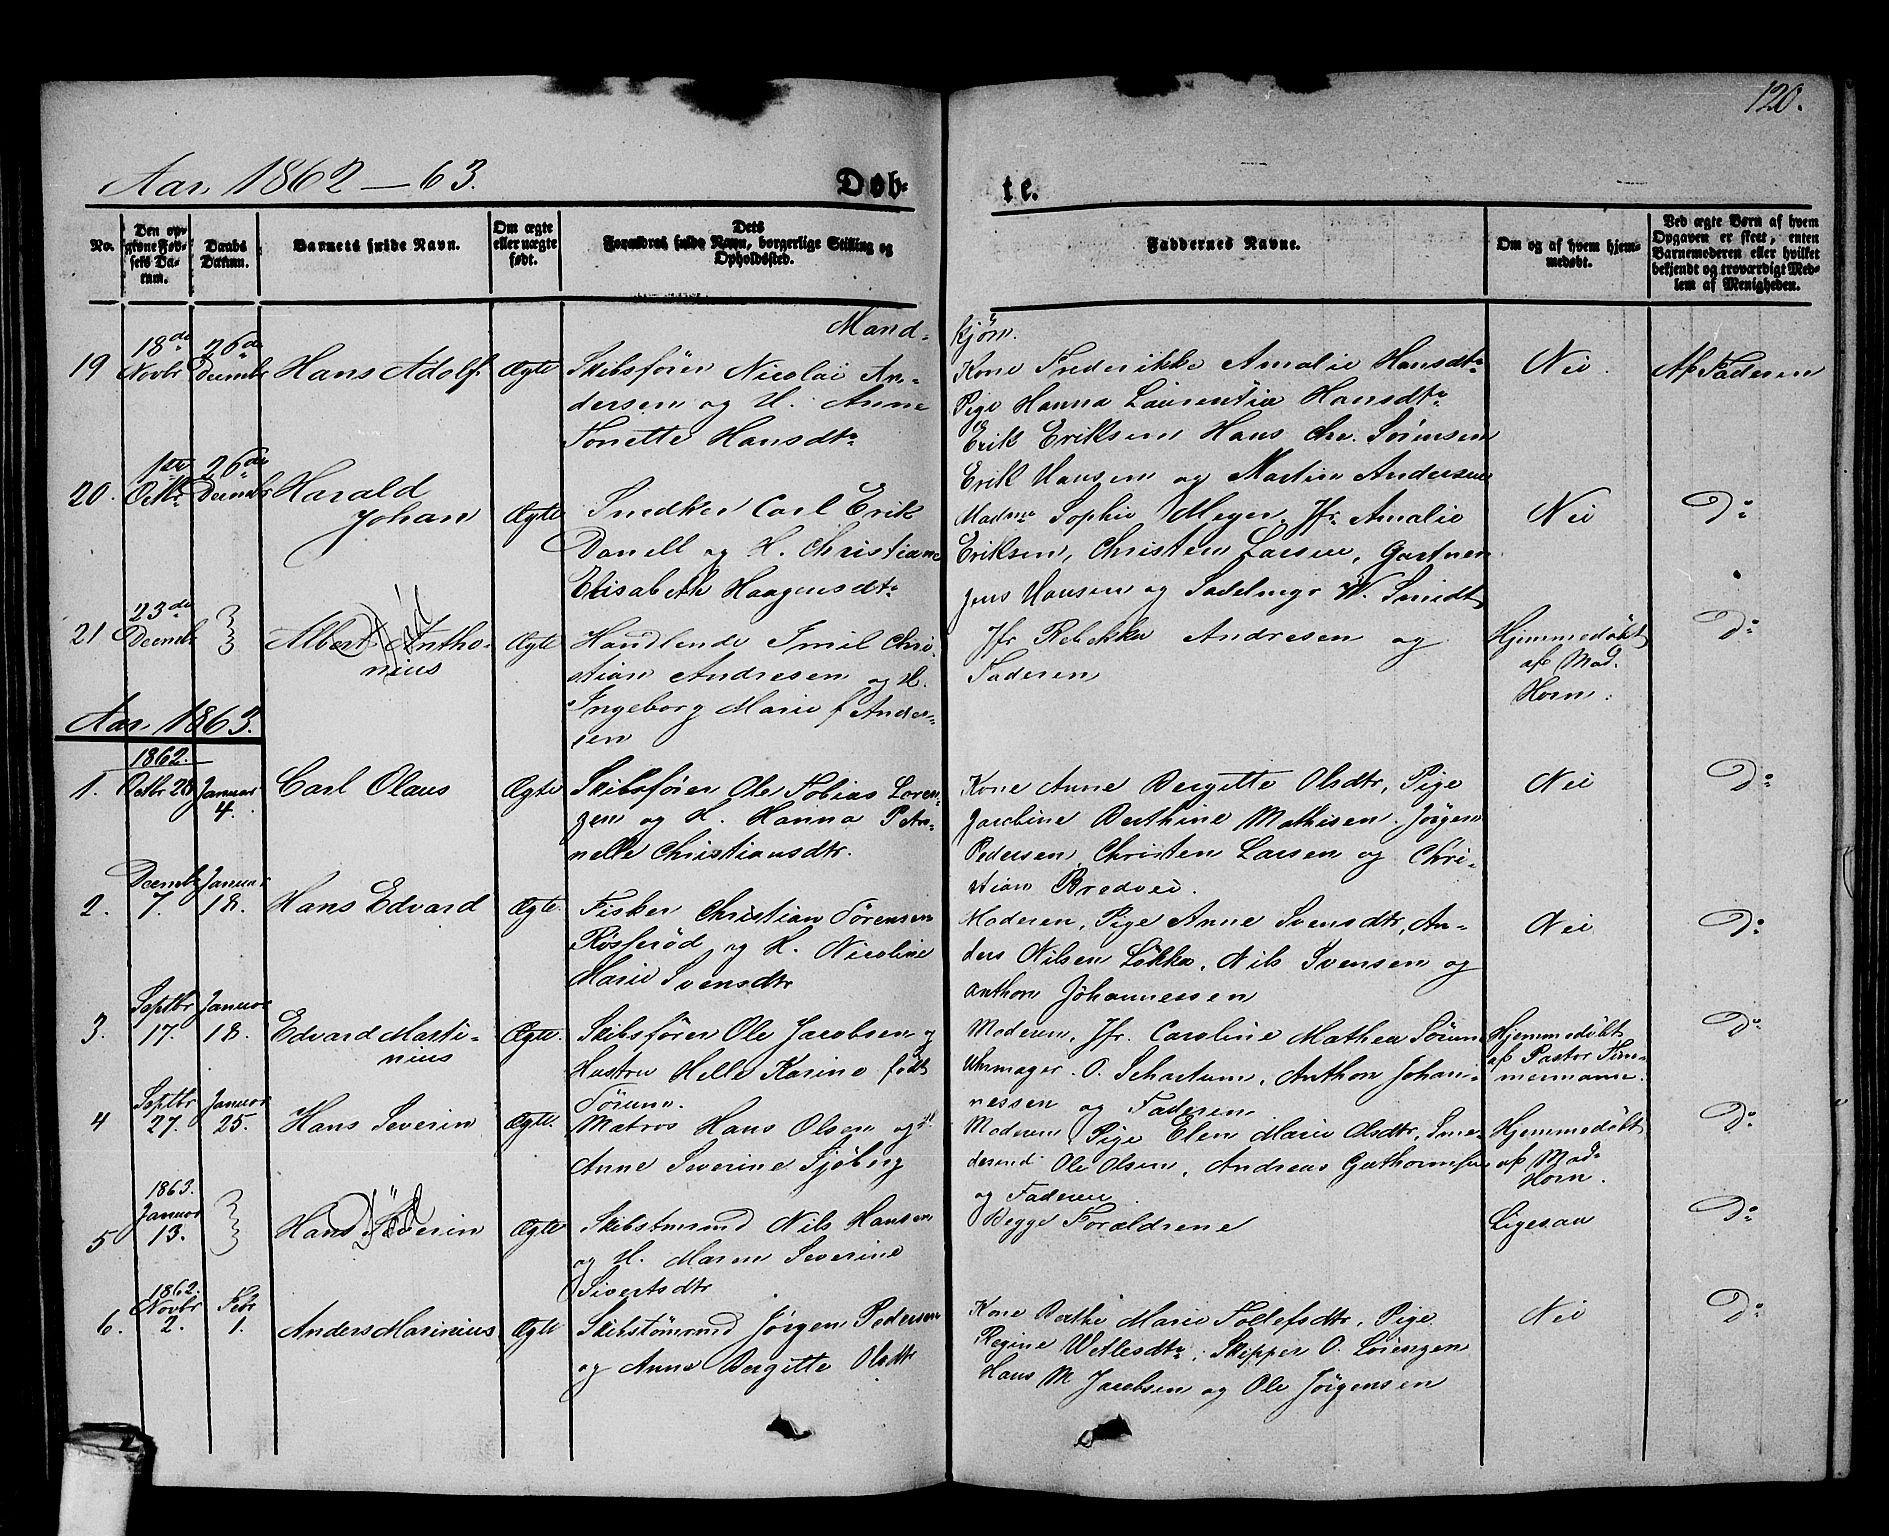 120.
Aar 1862–63.
Døb-
te.
No.
Den opgivne Fødselsdatum.
Daabs Datum.
Barnets fulde Navn.
Om ægte eller uægte født.
Dets Forældres fulde Navn, borgerlige Stilling og Opholdssted.
Faddernes Navne.
Om og af hvem hjemmedøbt.
Ved ægte Børn af hvem Opgaven er skeet, enten Barnemoderen eller hvilket bekjendt og troværdigt Medlem af Menigheden.
Mand-
kjøn.
19
18de Novbr
26de Decmbr
Hans Adolf
Ægte
Skibsfører Nicolai An-
dersen og H. Anne
Tonette Hansdtr
Kone Frederikke Amalie Hansdtr
Pige Hanna Laurentia Hansdtr
Erik Eriksen Hans Chr. Sørensen
Erik Hansen og Martin Andersen
Nei.
Af Faderen
20.
1ste Oktbr
26de Decmbr
Harald
Johan
Ægte
Snedker Carl Erik
Danell og H. Christiane
Elisabeth Haagensdtr
Madme Sophie Meyer, Jfr Amalie
Eriksen, Christen Larsen, Gartner
Jens Hansen og Sadelmgr W. Smidt
Nei
Do
21
23de Decmbr
Albert Antho-
nius
Død
Ægte
Handlende Emil Chri-
stian Andresen og H.
Ingeborg Marie f Ander-
sen
Jfr Rebekka Andresen og
Faderen
Hjemmedøbt
af Mad.
Horn.
Do
Aar 1863.
1862.
1.
Octbr 28
Januar 4.
Carl Olaus
Ægte
Skibsfører Ole Tobias Loren-
zen og H. Hanna Peter-
nelle Christiansdtr.
Kone Anne Bergitte Olsdtr, Pige
Jacobine Berthine Mathisen. Jørgen
Pedersen, Christen Larsen og Chri-
stian Bredvei.
Nei
Do
2.
Decmbr 7.
Januar 18.
Hans Edvard
Ægte
Fisker Christian Sørensen
Røsferød og H. Nicoline
Marie Svensdtr
Moderen, Pige Anne Svensdtr, An-
ders Nilsen Løkke, Nils Svensen og
Anthon Johannessen
Nei
Do
3.
Septbr 17.
Januar 18.
Edvard Marti-
nius
Ægte.
Skibsfører Ole Jacobsen og
Hustru Helle Karine født
Sørum.
Moderen, Jfr. Caroline Mathea Sørum
Uhrmager O. Schartum, Anthon Johan-
nessen og Faderen
Hjemmedøbt
af Pastor Tim-
mermann.
Do
4
Septbr 27.
Januar 25.
Hans Severin
Ægte.
Matros Hans Olsen og H.
Anne Severine Sjøberg
Moderen, Pige Elen Marie Olsdtr, Sme-
desvend Ole Olsen, Andreas Guthormsen
og Faderen
Hjemmedøbt
af Mad.
Horn.
Do
1863.
5
Januar 13.
Hans Severin
Død
Ægte
Skibstmrmd Nils Hansen
og H. Maren Severine
Sivertsdtr
Begge Forældrene
Ligesaa
Do
1862.
6.
Novbr 2.
Febr 1.
Anders Marinius
Ægte
Skibstømrmd Jørgen Pedersen
og Anne Bergitte Olsdtr
Kone Berthe Marie Tollefsdtr, Pige
Regine Wetlesdtr, Skipper O. Lorenzen
Hans M Jacobsen og Ole Jørgensen
Nei
Do